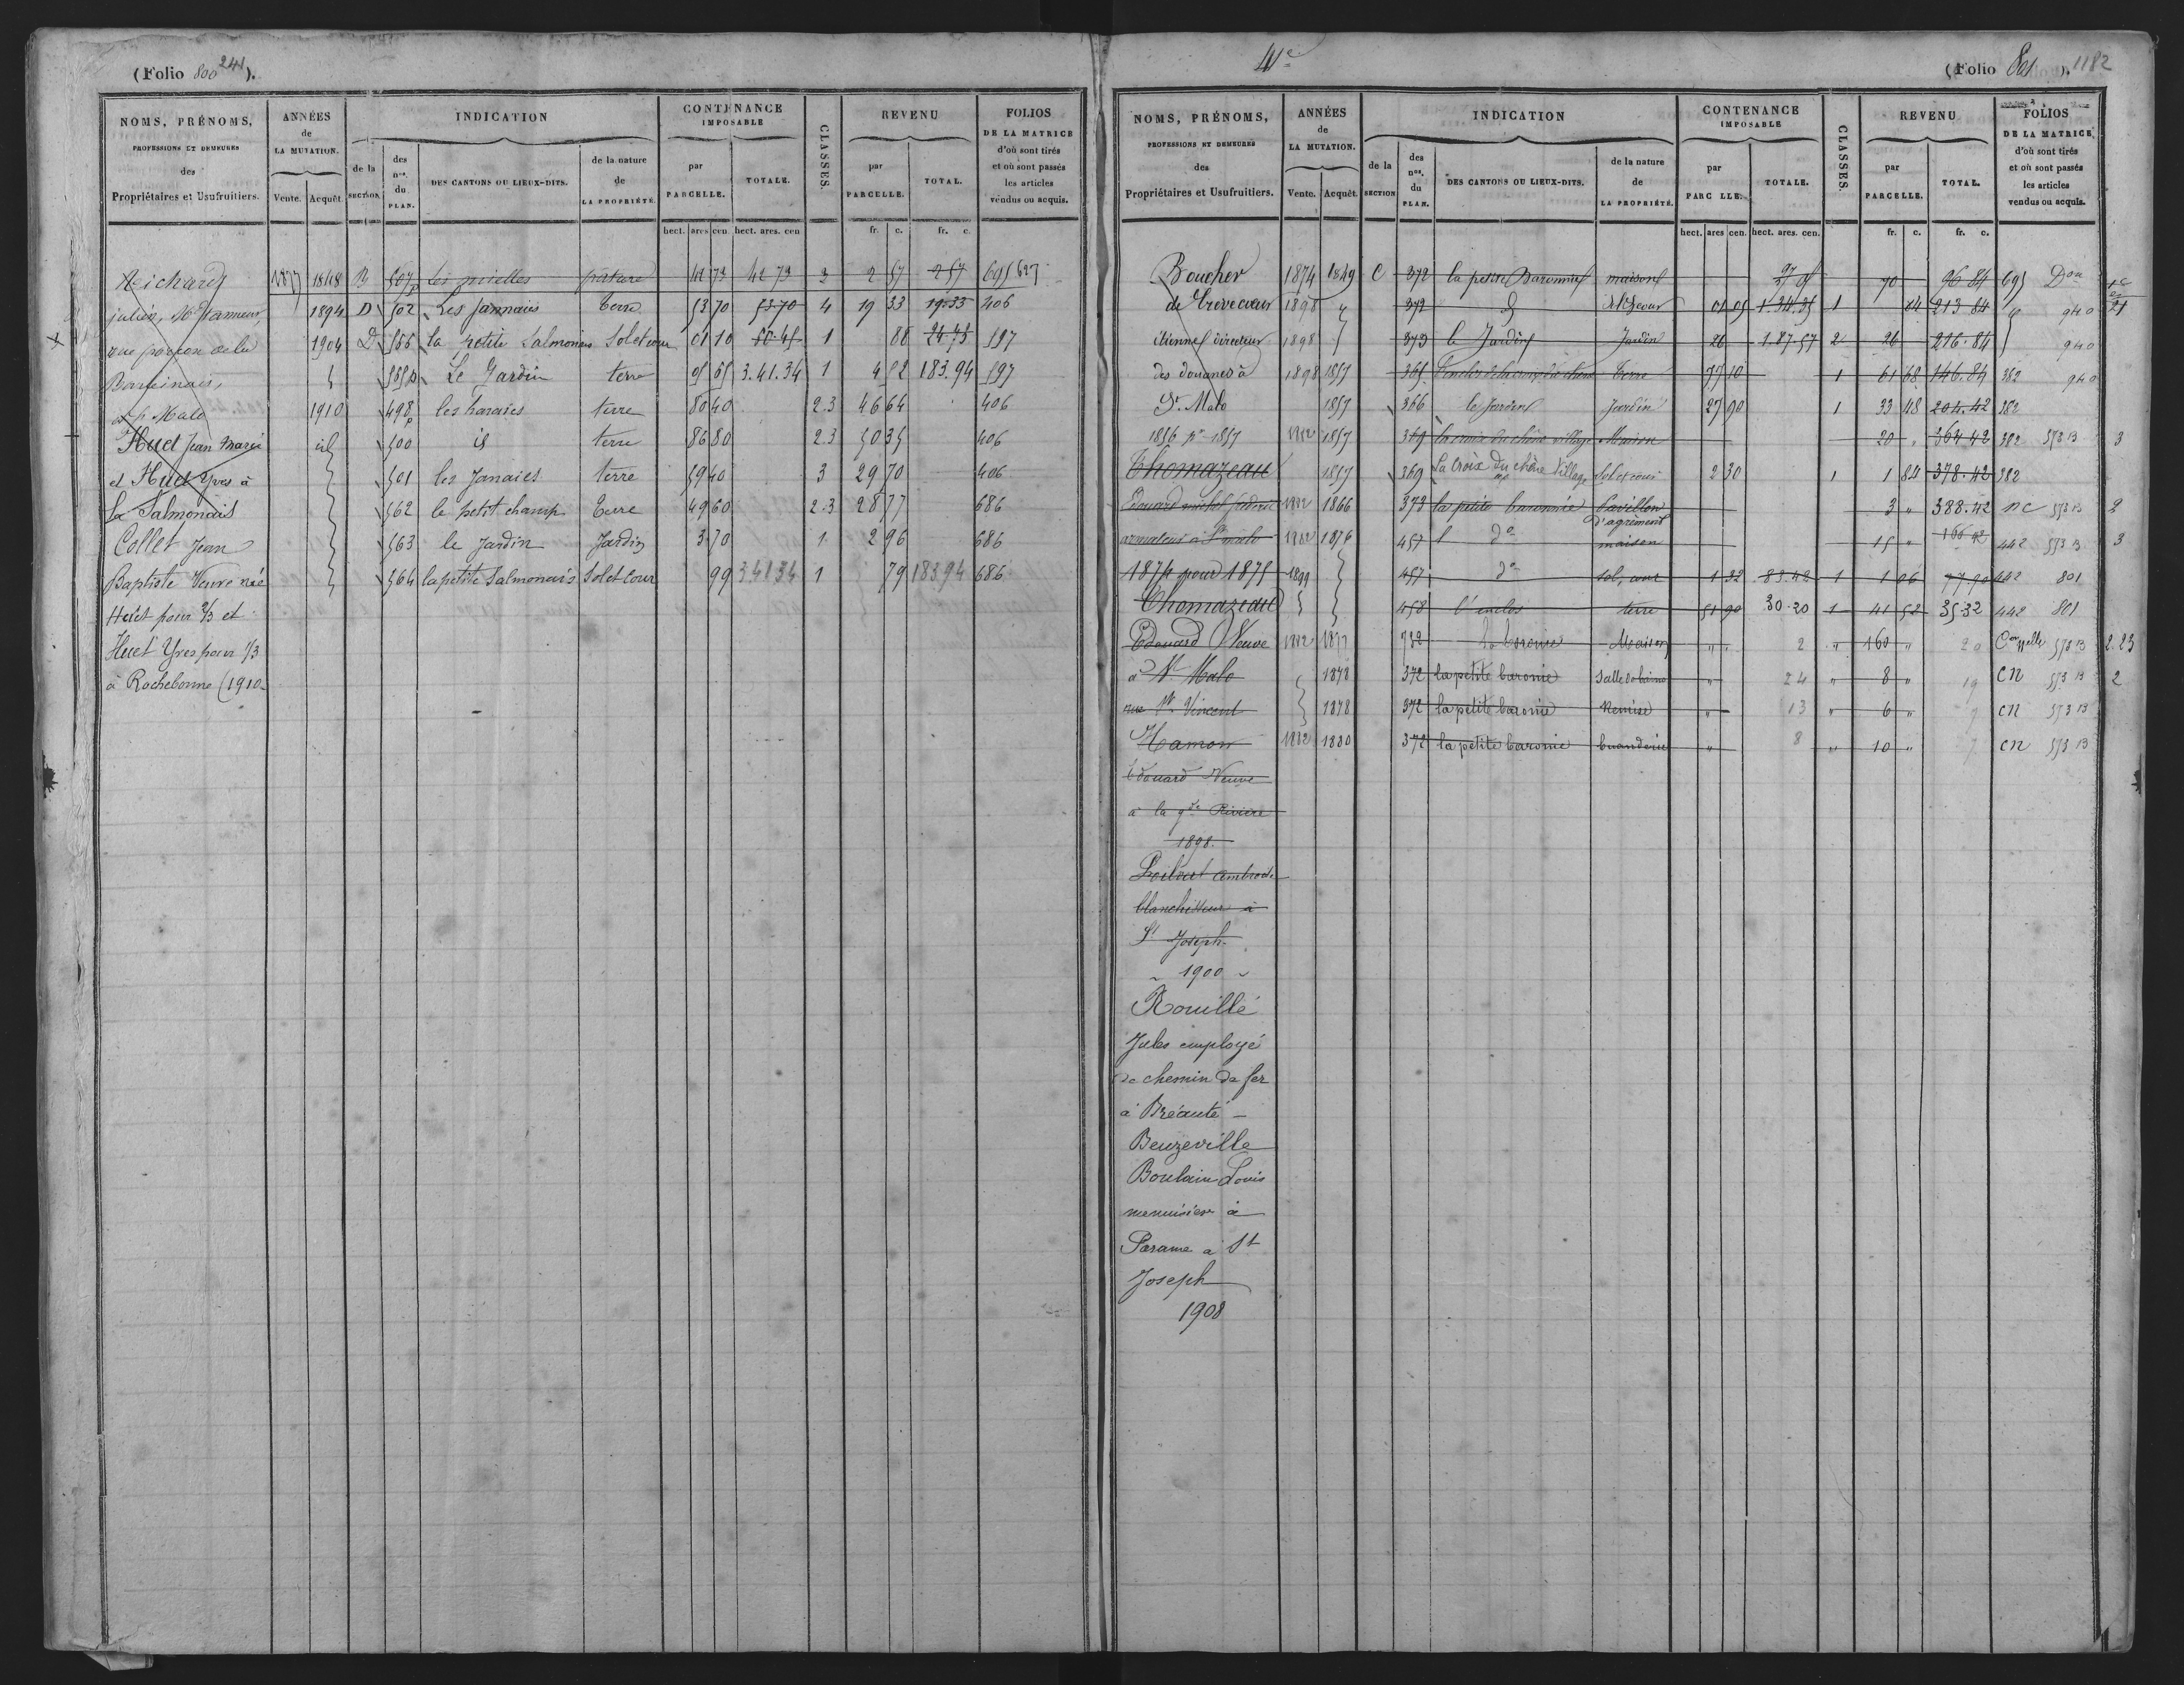 (Folio 800 241).
NOMS, PRÉNOMS,
PROFESSIONS ET DEMEURES
des
Propriétaires et Usufruitiers.
ANNÉES
de
LA MUTATION.
Vente. Acquêt.
INDICATION
de la
SECTION
des
nos.
du
PLAN.
DES CANTONS OU LIEUX-DITS.
de la nature
de
LA PROPRIÉTÉ.
CONTENANCE
IMPOSABLE
par
PARCELLE.
TOTALE.
CLASSES.
REVENU
par
PARCELLE.
TOTAL.
FOLIOS
DE LA MATRICE
d'où sont tirés
et où sont passés
les articles
vendus ou acquis.
hect. ares cen. hect. ares. cen
fr. c. fr. c.
Richard 1877 1848 507p pature 42 73 42 73 3 2 57 2 57 695 627
julien 1894 D 502 Les Jannais terre 53 70 53-70 4 19 33 19.33 406
1904 D 566 la petite Salmonais Sol et cour 01 10 1 88 24-75 597
565p Le Jardin terre 05 65 3.41.34 1 4 52 183.94 597
à St Malo 1910 498p les haraies terre 80 40 2.3 46 64 406
Huet Jean Marie id 500 id terre 86 80 2.3 50 35 406
et Huet Yves à 501 les Janaies terre 59 40 3 29 70 406
La Salmonais 562 le petit champ terre 49 60 2.3 28 77 686
Collet Jean 563 le Jardin Jardin 3 70 1 2 96 686
Baptiste Veuve née 564 la petite Salmonais Sol et Cour 99 3.41.34 1 79 183.94 686
Huet pour 2/3 et
Huet Yves pour 1/3
à Rochebonne (1910
(Folio 801). 1182
NOMS, PRÉNOMS,
PROFESSIONS ET DEMEURES
des
Propriétaires et Usufruitiers.
ANNÉES
de
LA MUTATION.
Vente. Acquêt.
INDICATION
de la
SECTION
des
nos.
du
PLAN.
DES CANTONS OU LIEUX-DITS.
de la nature
de
LA PROPRIÉTÉ.
CONTENANCE
IMPOSABLE
par
PARC LLE.
TOTALE.
CLASSES.
REVENU
par
PARCELLE.
TOTAL.
FOLIOS
DE LA MATRICE
d'où sont tirés
et où sont passés
les articles
vendus ou acquis.
hect. ares cen. hect. ares. cen.
fr. c. fr. c.
Boucher 1874 1849 C 372 la petite Baronnie maison 70 96-84 695
de Crevecoeur 1898 372 01 05 1.34.35 1 84 213 84 940 21
Etienne directeur 1898 373 le Jardin Jardin 26 1.87.57 2 26 216.84 940
des douanes à 1898 1857 365 terre 77 10 1 61 68 146.84 382 940
St. Malo 1857 366 le Jardin Jardin 27 90 1 33 48 204.42 382
1856 pr 1857 1882 1857 369 la croix du chêne village Maison 20 " 364 42 382 573 B 3
Thomazeau 1857 369 La Croix du chêne Village Sol et cour 2 30 1 1 84 378.42 382
Edouard 1882 1866 373 la petite baronnie Pavillon d'agrément 3 " 388.42 nc 573 B 2
armateur à St malo 1882 1876 457 do maison 15 " 166 42 442 573 B 3
1874 pour 1875 1899 457 do sol, cour 1 32 83.42 1 1 06 77.90 442 801
Thomazeau 458 l'enclos terre 51 90 30.20 1 41 52 35.32 442 801
Edouard Veuve 1882 1877 732 la baronie Maison " " 2 " 160 " 20 573 B 2.23
à St Malo 1878 372 la petite baronie Salle de bains " 24 " 8 " 19 CN 573 B 2
rue St Vincent 1878 372 la petite baronie Remise " 13 " 6 " 7 CN 573 B
Hamon 1882 1880 372 la petite baronie buanderie " 8 " 10 " 7 CN 573 B
Edouard Veuve
à la gde Rivière
1898.
blanchisseur à
St Joseph.
~ 1900 ~
Rouillé
Jules employé
de chemin de fer
à Bréauté -
Beuzeville
Boulain Louis
menuisier à
Parame à St
Joseph
1908